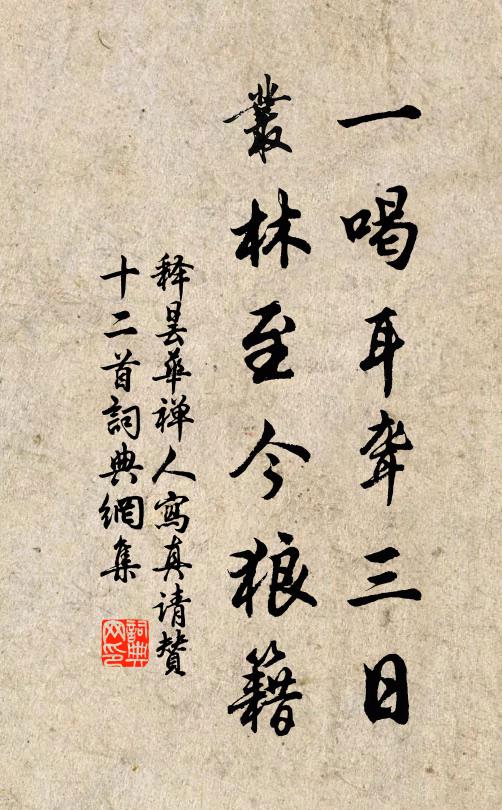 一喝耳聾三日
叢林至今狼籍
释曇華禅人寫真请贊
十二首詞典網集
詞典
网印